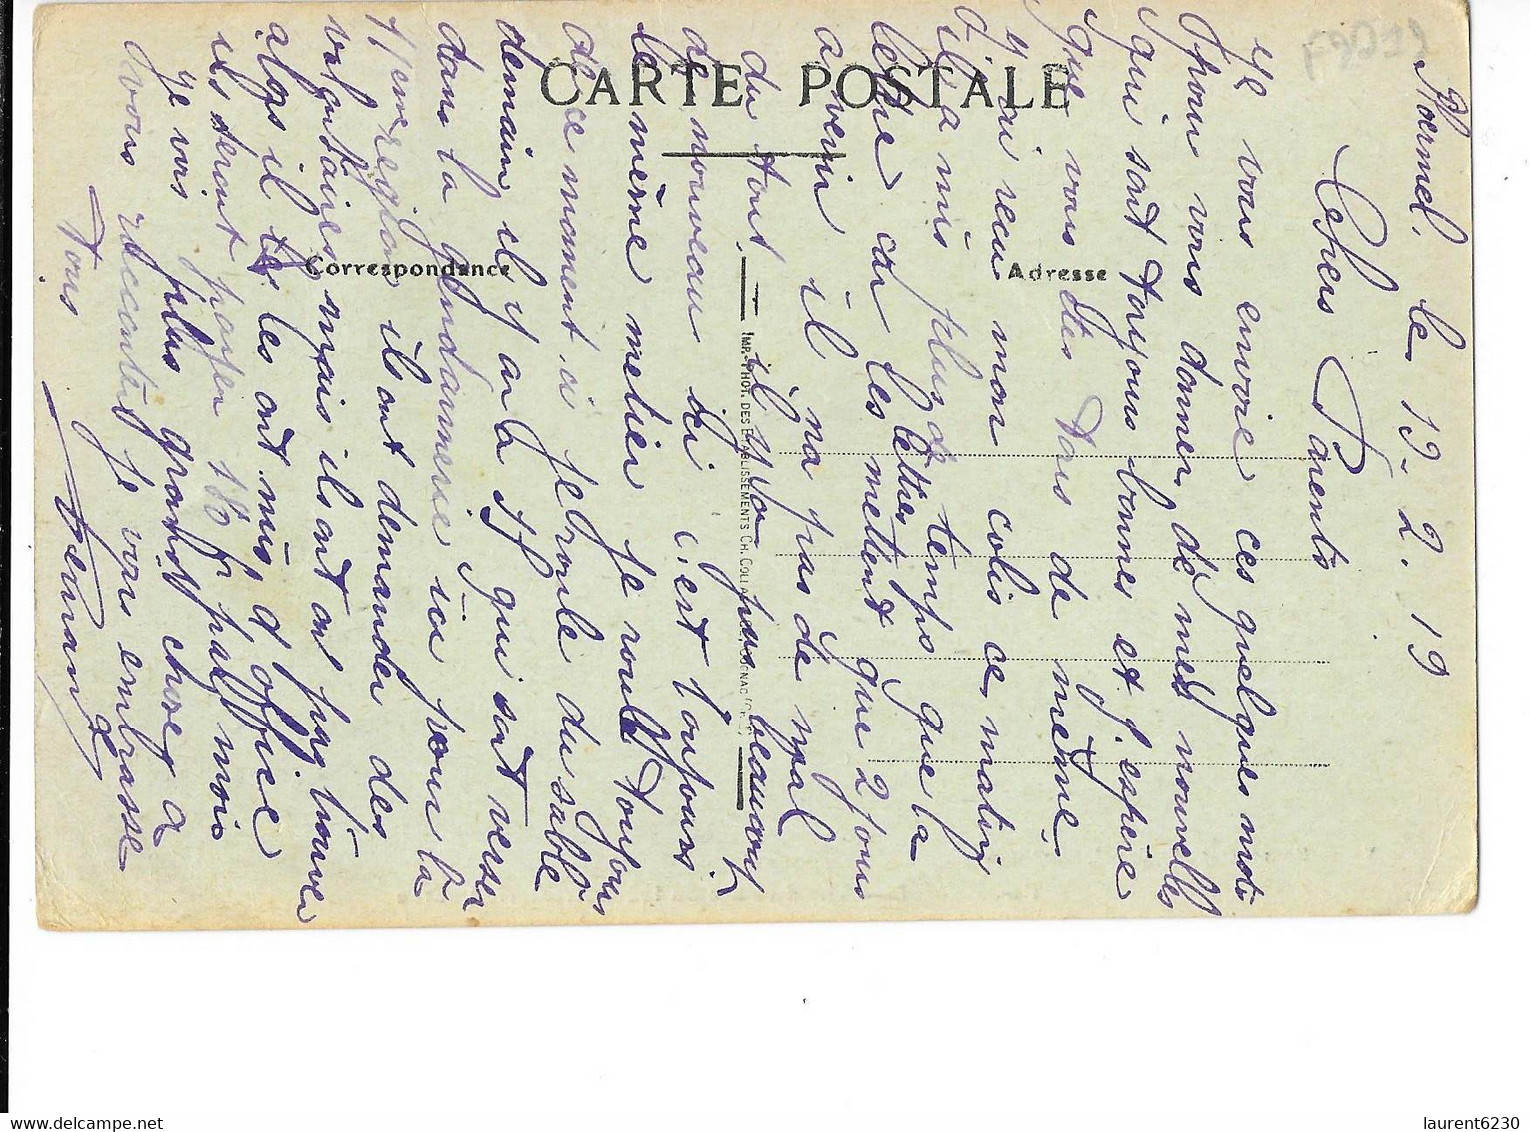 Ploermel, le 19-2-19
Chers Parents
Je vous envoie ces quelques mots
pour vous donner de mes nouvelles
qui sont toujours bonnes et j'espère
que vous êtes tous de même.
j'ai recu mon colis ce matin
il a mis plus de temps que la
lettre car les lettres metient que 2 jours
a venir il n'a pas de mal
du tout. il y a pas beaucoup
de nouveau ici c'est toujours
le même metier je roule toujours
de ce moment ci je roule du sable
demain il y a la 17 qui sont verser
dans la gendarmerie ici pour la
11eme region ils ont demander des
volontaires mais ils ont en pas trouver
alors il les ont mis d'office
ils seront payer 180 f par mois
Je vois plus grand chose a
vous raconter je vous embrasse
tous
Fernand
CARTE POSTALE
Correspondance
Adresse
IMP. PHOT. DES ETABLISSEMENTS CH. COLLAS, COGNAC
laurent6230